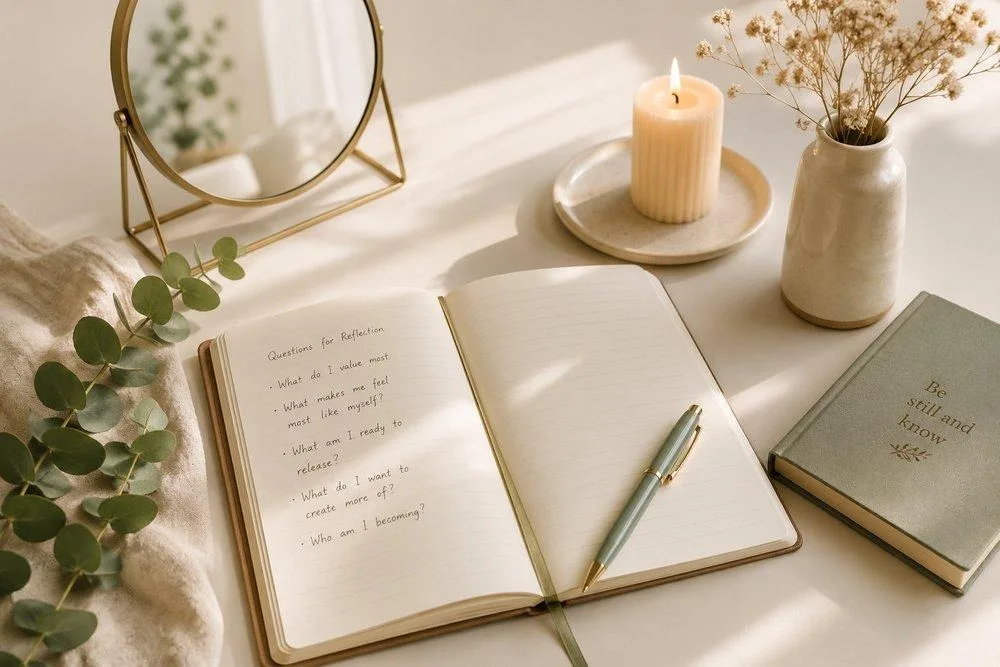 Questions for Reflection
· What do I value most
· What makes me feel
most like myself?
· What am I ready to
release?
· What do I want to
create more of?
· Who am I becoming?
Be
still and
know